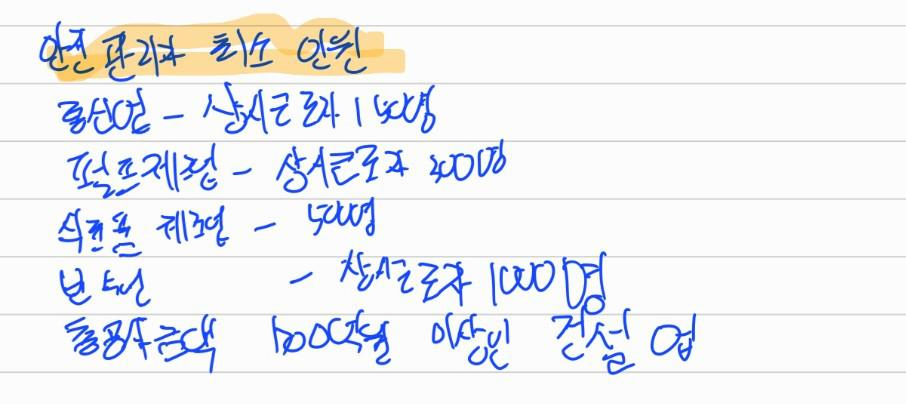 안전관리자 최소 인원
통신업 - 상시근로자 150명
펄프제조업 - 상시근로자 300명
식료품 제조업 - 500명
- 상시근로자 1000명
총공사금액 1500억원 이상인 건설업